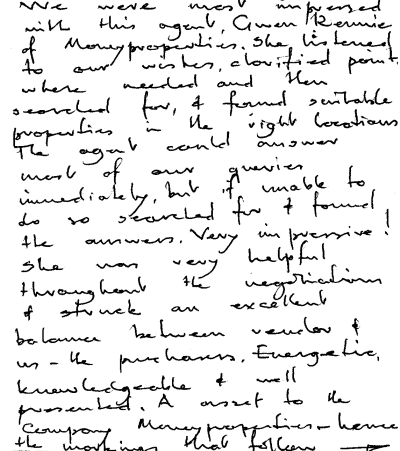 We were most impressed
with this agent, Gwen Rennie
of Moneyproperties. She listened
to our wishes, clarified points
where needed and then
searched for, & found suitable
properties in the right locations
The agent could answer
most of our queries
immediately, but if unable to
do so searched for & found
the answers. Very impressive!
She was very helpful
throughout the negotiations
& struck an excellent
balance between vendor &
us - the purchasers. Energetic,
knowledgeable & well
presented. A asset to the
company Moneyproperties - hence
the markings that follow →